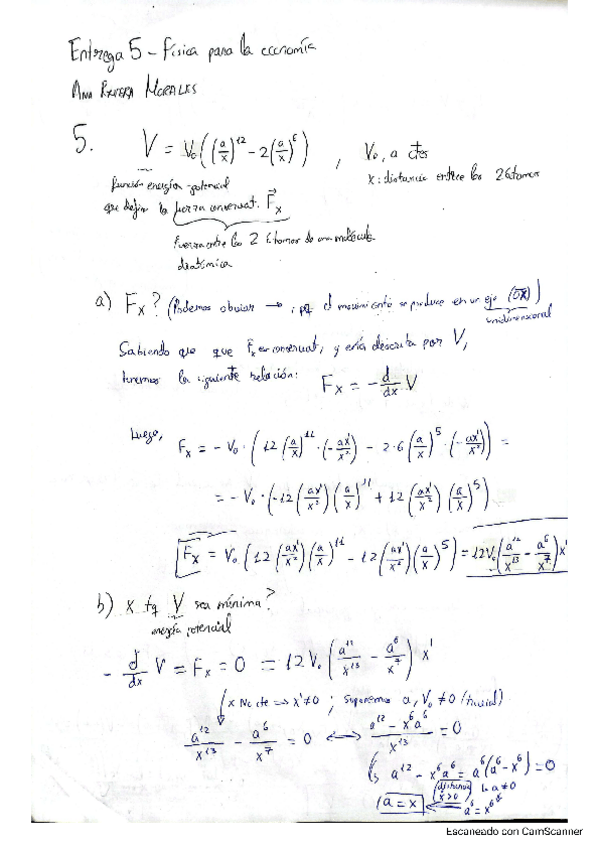 Entrega 5 - Física para la economía
Ana Rivera Morales
5. V = V₀((a/x)¹² - 2(a/x)⁶) , V₀, a ctes
x: distancia entre los 2 átomos
función energía-potencial
que define la fuerza conservat. F⃗x
fuerza entre los 2 átomos de una molécula
diatómica
a) Fx? (Podemos obviar → , pq el movimiento se produce en un eje (OX))
unidimensional
Sabiendo que que Fx es conservat, y está descrita por V,
tenemos la siguiente relación: Fx = - d/dx V
Luego, Fx = - V₀ · (12 (a/x)¹¹ · (- ax'/x²) - 2·6 (a/x)⁵ · (- ax'/x²)) =
= - V₀ · (-12 (ax'/x²) (a/x)¹¹ + 12 (ax'/x²) (a/x)⁵)
Fx = V₀ (12 (ax'/x²)(a/x)¹¹ - 12 (ax'/x²)(a/x)⁵) = 12V₀ (a¹²/x¹³ - a⁶/x⁷) x'
b) x tq V sea mínima?
energía potencial
- d/dx V = Fx = 0 = 12 V₀ (a¹²/x¹³ - a⁶/x⁷) x'
x No cte ⇒ x' ≠ 0 ; Suponemos a, V₀ ≠ 0 (trivial).
a¹²/x¹³ - a⁶/x⁷ = 0 ⟷ a¹² - x⁶a⁶/x¹³ = 0
a¹² - x⁶a⁶ = a⁶(a⁶ - x⁶) = 0
(distancia x > 0) a ≠ 0
a = x ← a⁶ = x⁶
Escaneado con CamScanner